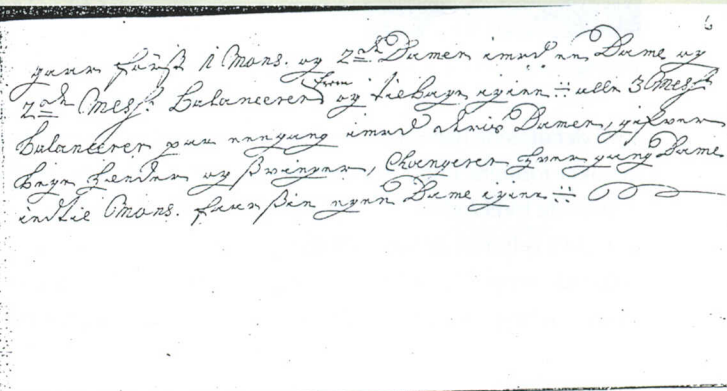 6
gaar førß 1 Mons. og 2de Damer imod en Dame og
2de Mess. balancerer frem og tilbage igien ÷ alle 3 Mess.
balancerer paa eengang imod deris Damer, gifver
begge hender og ßvinger, Changerer hver gang Dame
indtil Mons. faar ßin egen Dame igien ÷